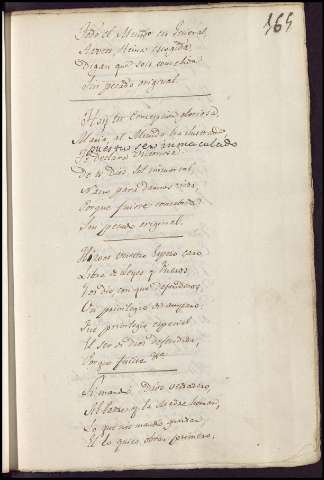 165
Todo el Mundo en General,
Reina escogida
Digan que sois concebida
Sin pecado original.
Hoy tu Concepcion gloriosa
Maria, al Mundo ha
pues tu ser inmaculado
declara
De Dios
para darnos vida,
Porque fuiste concebida
Sin pecado original.
Hizoos vuestro Esposo caro
Libre de leyes y fueros
Por Dios, con que defenderos,
Un privilegio de amparo
Fue privilegio especial
El ser de Dios defendida,
Porque fuiste &a
Si mandó Dios verdadero
al Padre y la Madre honrar,
Lo que nos mandó guardar
El lo quiso obrar primero,